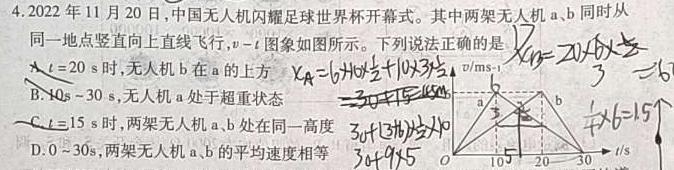 4.2022 年 11 月 20 日,中国无人机闪耀足球世界杯开幕式。其中两架无人机 a、b 同时从
同一地点竖直向上直线飞行,v-t 图象如图所示。下列说法正确的是
A. t=20 s 时,无人机 b 在 a 的上方
B. 10s ~30 s,无人机 a 处于超重状态
C. t=15 s 时,两架无人机 a、b 处在同一高度
D. 0 ~30s,两架无人机 a、b 的平均速度相等
XA=6×10×1/2+10×3×1/2
30+(3+6)×1/2×10
30+9×5
=20×6×1/2
3
=6
1/4×6=1.5
v/ms-1
6
a
b
3
O
10
5
20
30
t/s